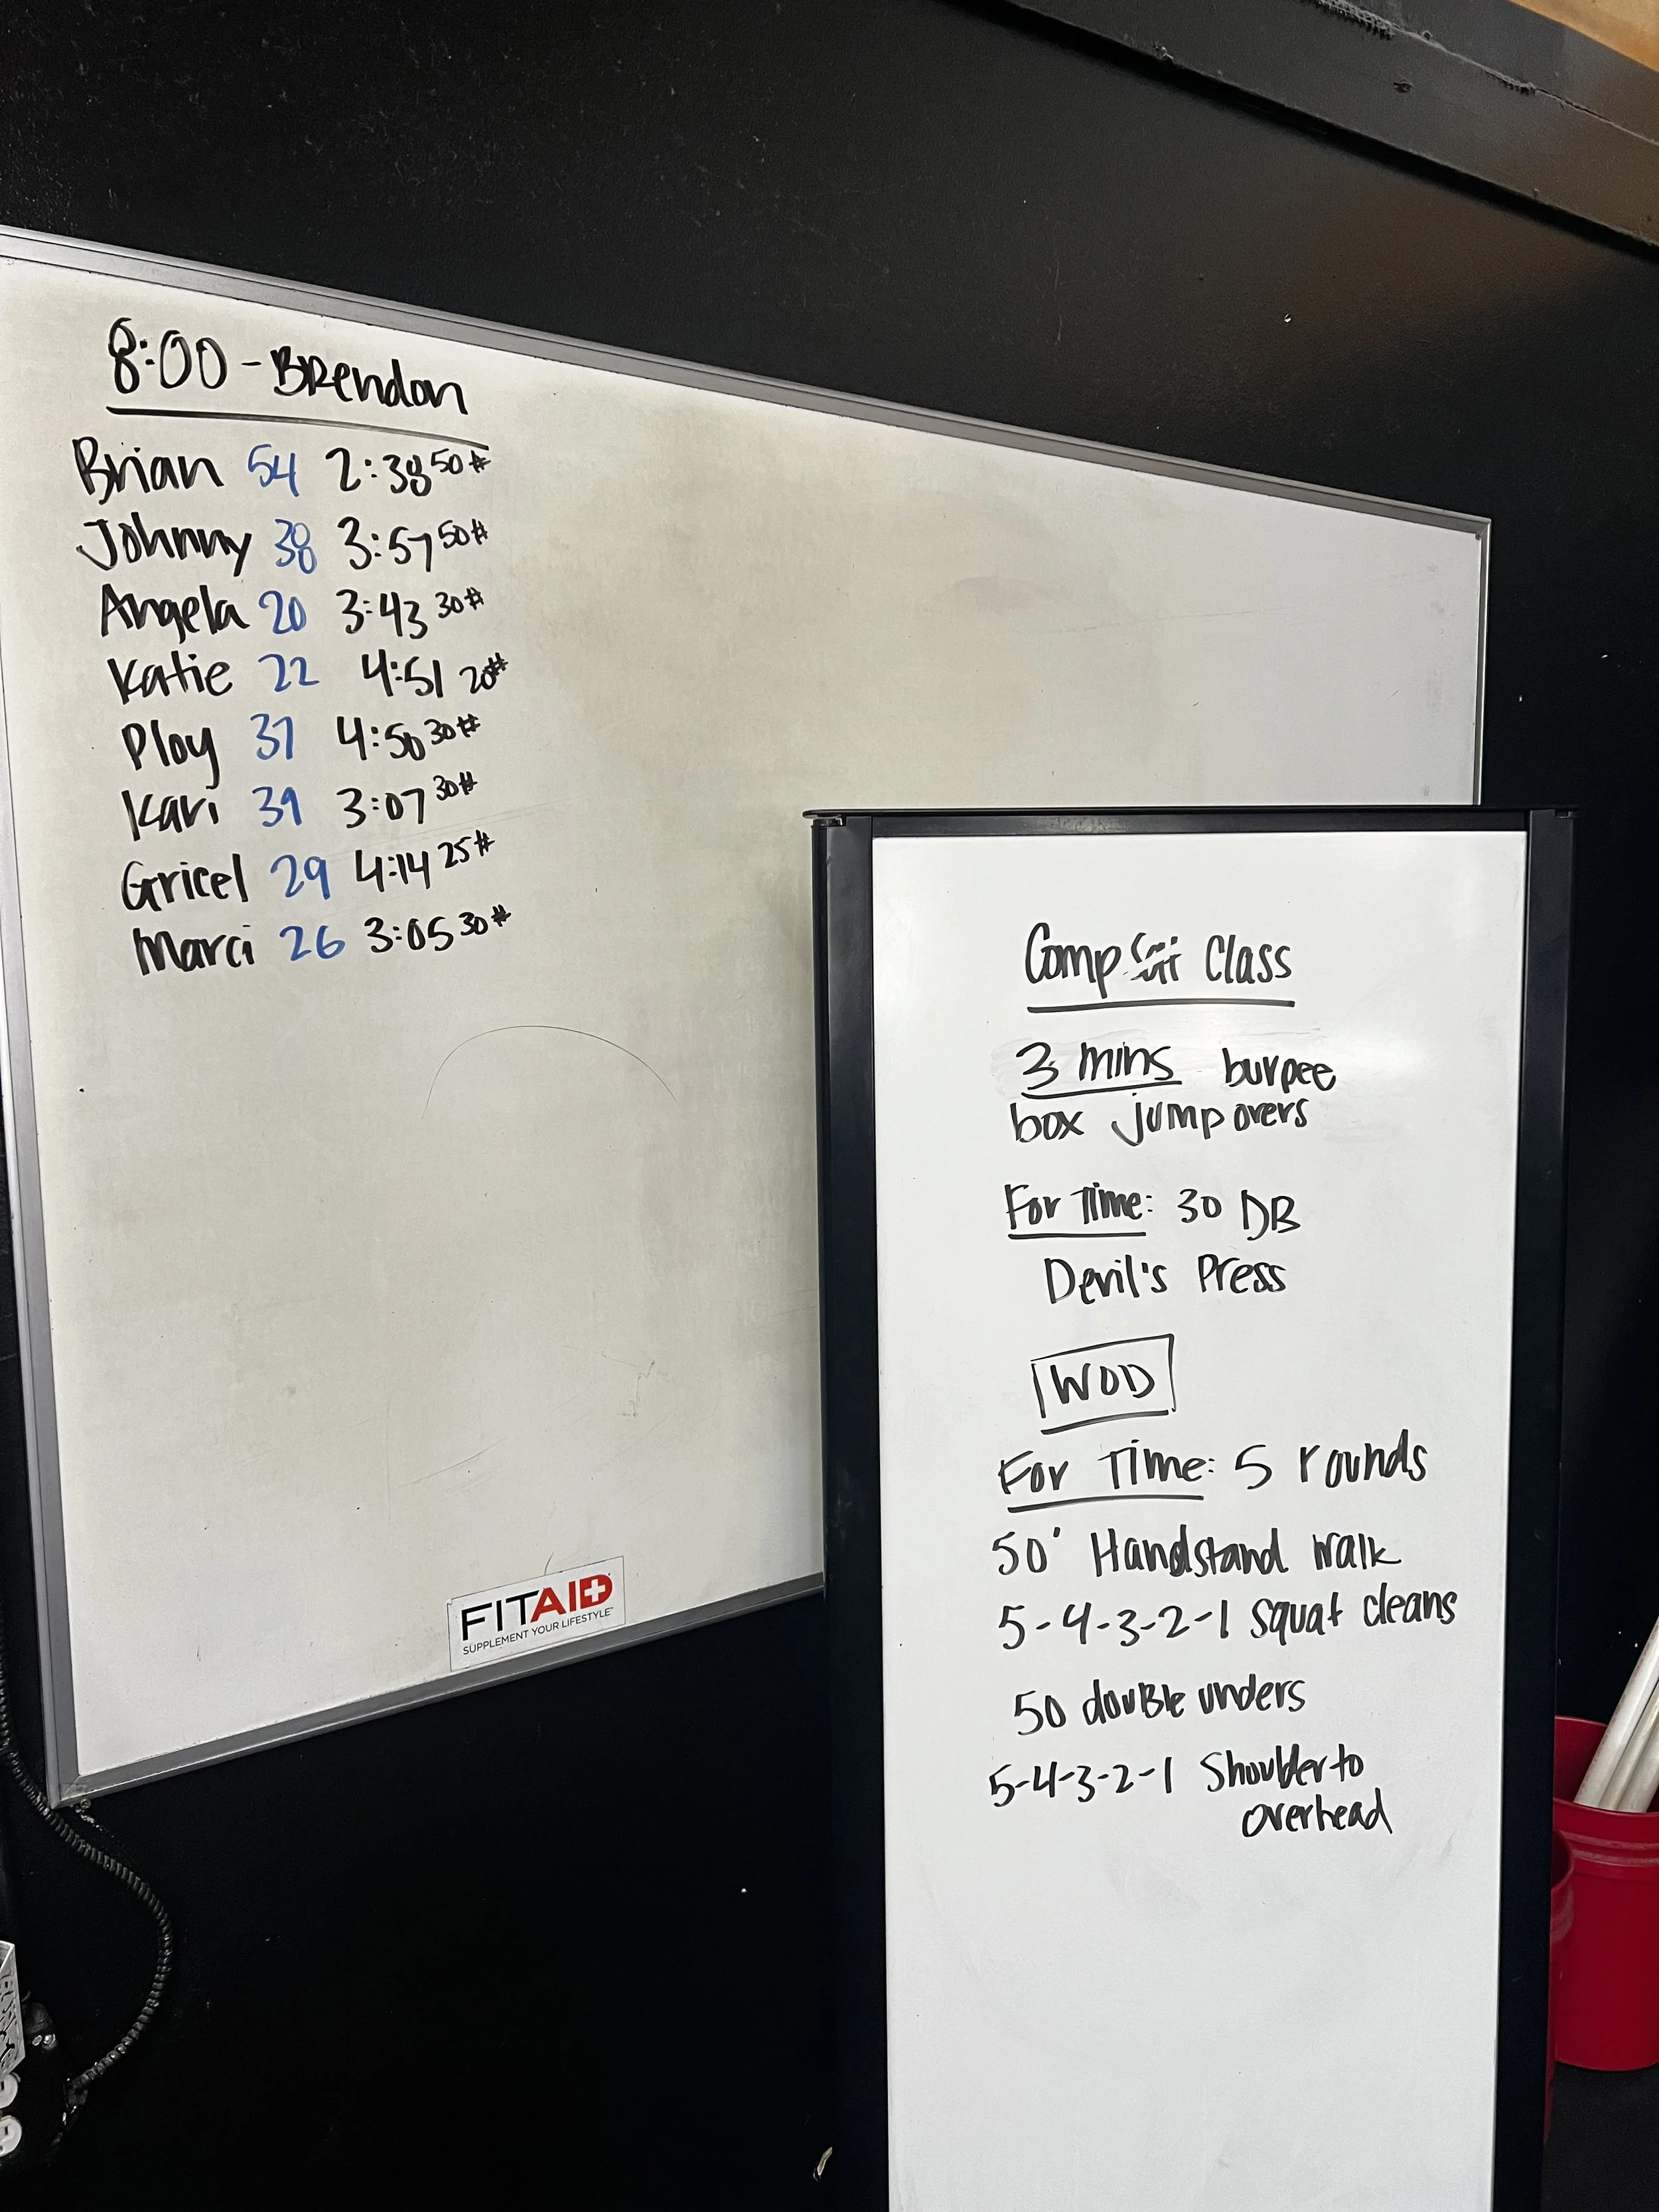 8:00 - Brendon
Brian 54 2:38 50#
Johnny 38 3:57 50#
Angela 20 3:43 30#
Katie 22 4:51 20#
Ploy 37 4:50 30#
Kari 39 3:07 30#
Gricel 29 4:14 25#
Marci 26 3:05 30#
FITAID
SUPPLEMENT YOUR LIFESTYLE
Comp Class
3 mins burpee
box jump overs
For Time: 30 DB
Devil's Press
WOD
For Time: 5 rounds
50' Handstand walk
5-4-3-2-1 squat cleans
50 double unders
5-4-3-2-1 Shoulder to
overhead